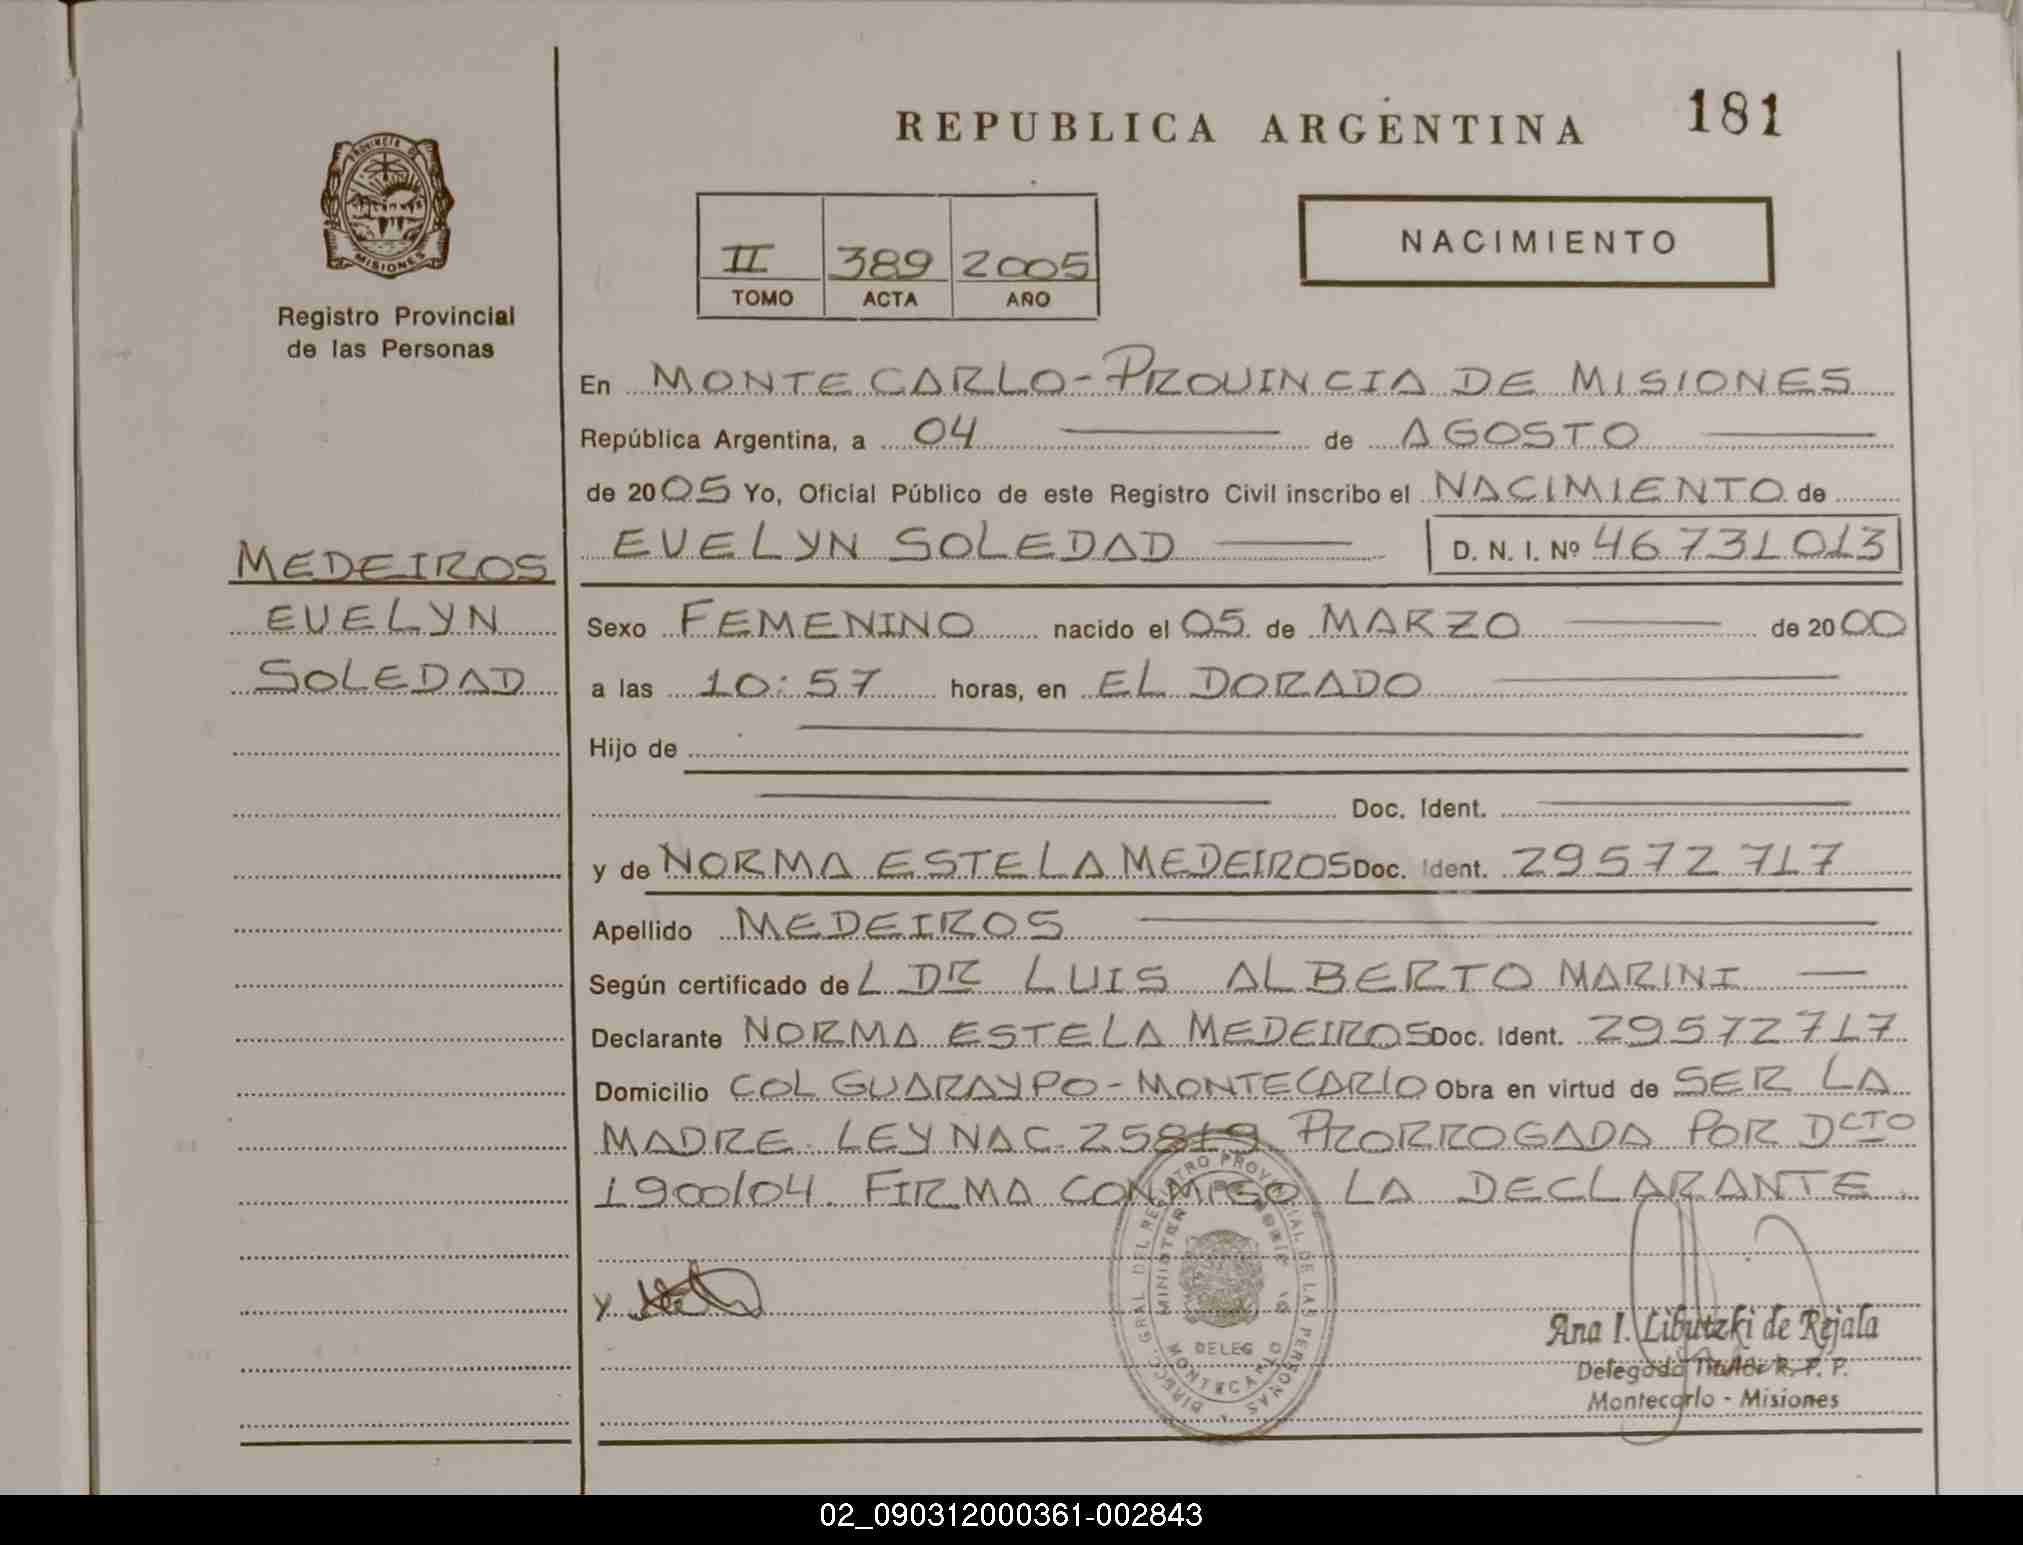 REPUBLICA ARGENTINA 181
PROVINCIA DE
MISIONES
Registro Provincial
de las Personas
II 389 2005
TOMO ACTA AÑO
NACIMIENTO
En MONTECARLO - PROVINCIA DE MISIONES
República Argentina, a 04 de AGOSTO
de 2005 Yo, Oficial Público de este Registro Civil inscribo el NACIMIENTO de
EVELYN SOLEDAD D. N. I. Nº 46.731.013
MEDEIROS
EVELYN
SOLEDAD
Sexo FEMENINO nacido el 05 de MARZO de 2000
a las 10:57 horas, en EL DORADO
Hijo de
Doc. Ident.
y de NORMA ESTELA MEDEIROS Doc. Ident. 29572717
Apellido MEDEIROS
Según certificado de L DR LUIS ALBERTO MARINI
Declarante NORMA ESTELA MEDEIROS Doc. Ident. 29572717
Domicilio COL GUARAYPO - MONTECARLO Obra en virtud de SER LA
MADRE. LEY NAC. 25819 PRORROGADA POR DCTO
1900/04. FIRMA CONMIGO LA DECLARANTE.
DIRECC. GRAL DEL REGISTRO PROVINCIAL DE LAS PERSONAS
DELEG
MONTECARLO
Ana I. Libutzki de Rejala
Delegada Titular R. P. P.
Montecarlo - Misiones
02_090312000361-002843